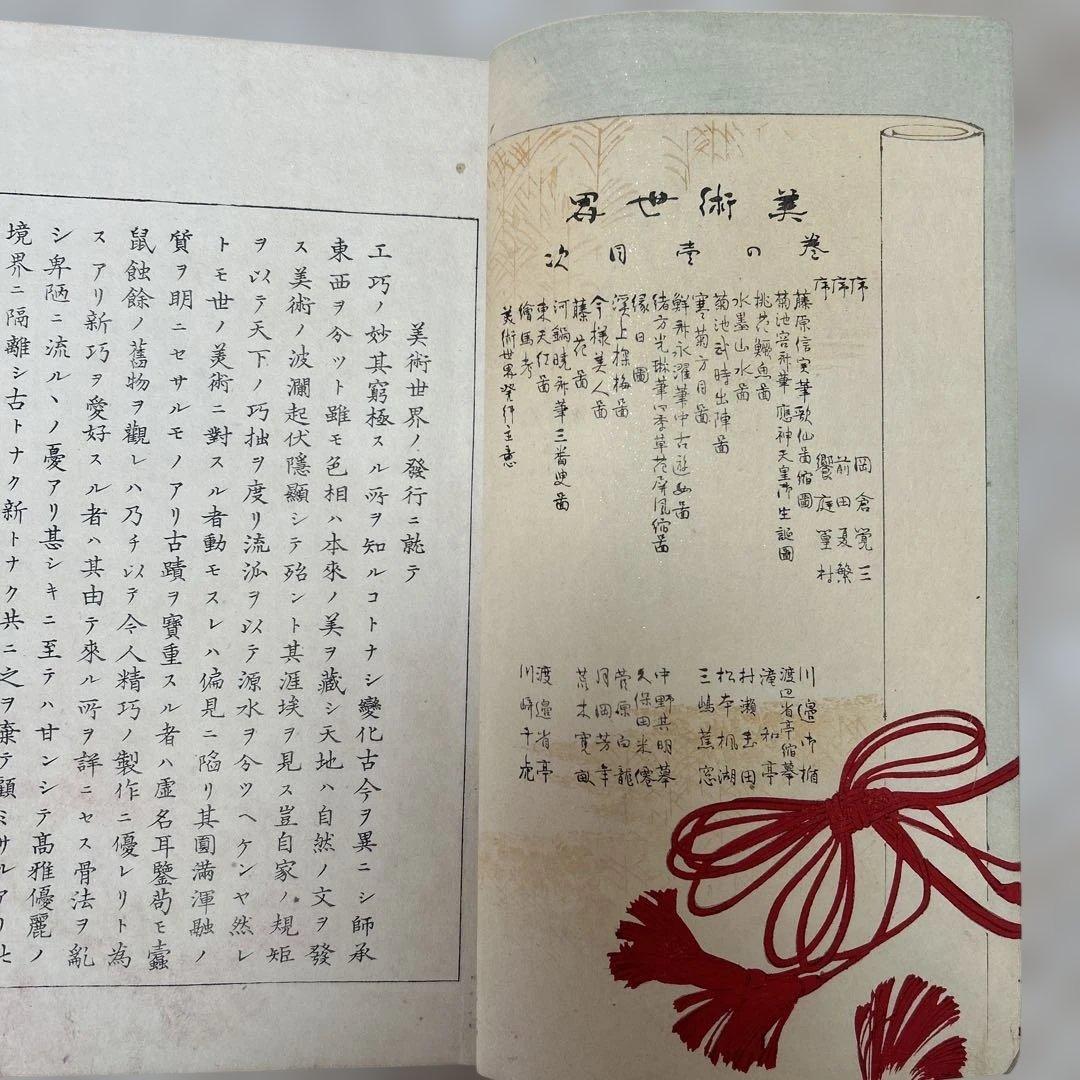 美術世界
巻の壹目次
序 岡倉覚三
序 前田夏繁
序 饗庭篁村
藤原信実筆歌仙啚縮圖 川邉御楯
菊池容斎筆應神天皇御生誕圖 渡辺省亭縮摹
桃花鱖魚啚 滝和亭
水墨山水啚 村瀬玉田
菊池武時出陣啚 松本楓湖
寒菊方目啚 三嶋蕉窓
鮮斎永濯筆中古遊女啚
緒方光琳筆四季草花屏風縮啚 中野其明摹
縁日圖 久保田米僊
渓上探梅啚 菅原白龍
今様美人啚 月岡芳年
藤花啚 荒木寛畝
河鍋暁斎筆三番叟啚
東天紅啚 渡邉省亭
繪馬考 川崎千虎
美術世界発行主意
美術世界ノ發行ニ就テ
工巧ノ妙其窮極スル所ヲ知ルコトナシ變化古今ヲ異ニシ師承
東西ヲ分ツト雖モ色相ハ本來ノ美ヲ藏シ天地ハ自然ノ文ヲ發
ス美術ノ波瀾起伏隱顯シテ殆ント其涯埃ヲ見ス豈自家ノ規矩
ヲ以テ天下ノ巧拙ヲ度リ流派ヲ以テ源水ヲ分ツヘケンヤ然レ
トモ世ノ美術ニ對スル者動モスレハ偏見ニ陷リ其圓滿渾融ノ
質ヲ明ニセサルモノアリ古蹟ヲ寶重スル者ハ虚名耳鑒苟モ蠹
鼠蝕餘ノ舊物ヲ觀レハ乃チ以テ今人精巧ノ製作ニ優レリト為
スアリ新巧ヲ愛好スル者ハ其由テ來ル所ヲ詳ニセス骨法ヲ亂
シ卑陋ニ流ルヽノ憂アリ甚シキニ至テハ甘ンシテ髙雅優麗ノ
境界ニ隔離シ古トナク新トナク共ニ之ヲ棄テ顧ミサルアリ